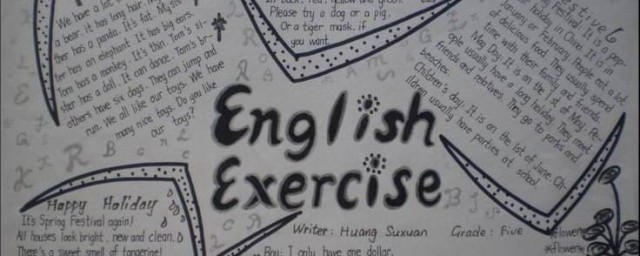 We have a lot
a bear. it has long hair. My
ter has a panda. It's fat. My sis
ter has an elephant. It has big ears.
Tom has a monkey. It's thin. Tom's si-
ster has a doll. It can dance. Tom's br-
others have six dogs. They can jump and
run. We all like our toys. We have
many nice toys. Do you like
our toys?
Please try a dog or a pig.
Or a tiger mask, if
you want.
English
Exercise
Festival. It is a pop-
holiday in China. It is in
January or February. People eat a lot
of delicious food. They usually spend
time with their family and friends.
May Day. It is on the 1st of May. Pe-
ople usually have a long holiday. They meet
friends and relatives. They go to parks and
beaches.
Children's day. It is on the 1st of June. Ch-
ildren usually have parties at
school.
Happy Holiday
It's Spring Festival again!
All houses look bright, new and clean.
There's a sweet smell of tangerine!
Writer: Huang Suxuan Grade: Five
Boy: I only have one dollar.
flower
flower